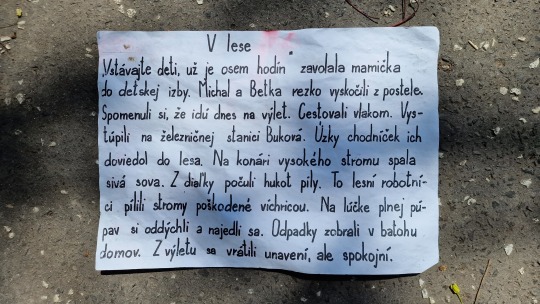 V lese
Vstávajte deti, už je osem hodín zavolala mamička
do detskej izby. Michal a Betka rezko vyskočili z postele.
Spomenuli si, že idú dnes na výlet. Cestovali vlakom. Vys-
túpili na železničnej stanici Buková. Úzky chodníček ich
doviedol do lesa. Na konári vysokého stromu spala
sivá sova. Z diaľky počuli hukot píly. To lesní robotní-
ci pílili stromy poškodené víchricou. Na lúčke plnej pú-
pav si oddýchli a najedli sa. Odpadky zobrali v batohu
domov. Z výletu sa vrátili unavení, ale spokojní.